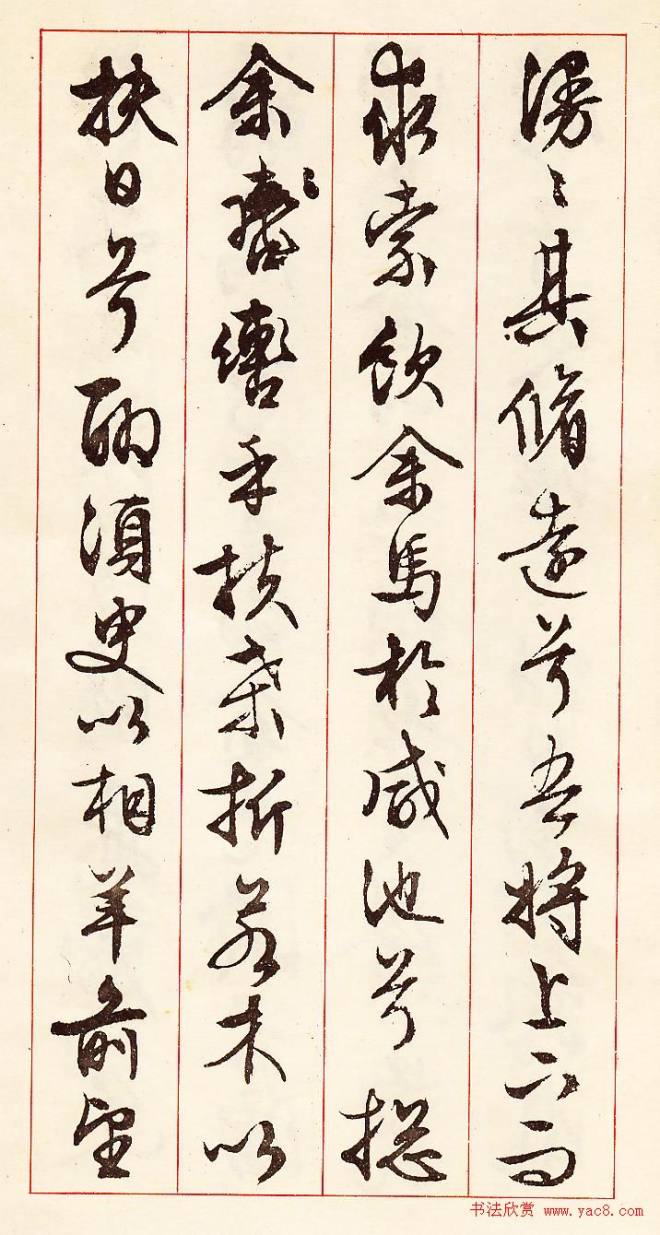 漫〻其脩遠兮吾將上下而
求索飲余馬於咸池兮揔
余轡乎扶桑折若木以
扶日兮聊須臾以相羊前望
书法欣赏 www.yac8.com